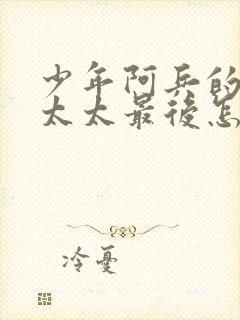 少年阿兵的
太太最後怎
冷憂